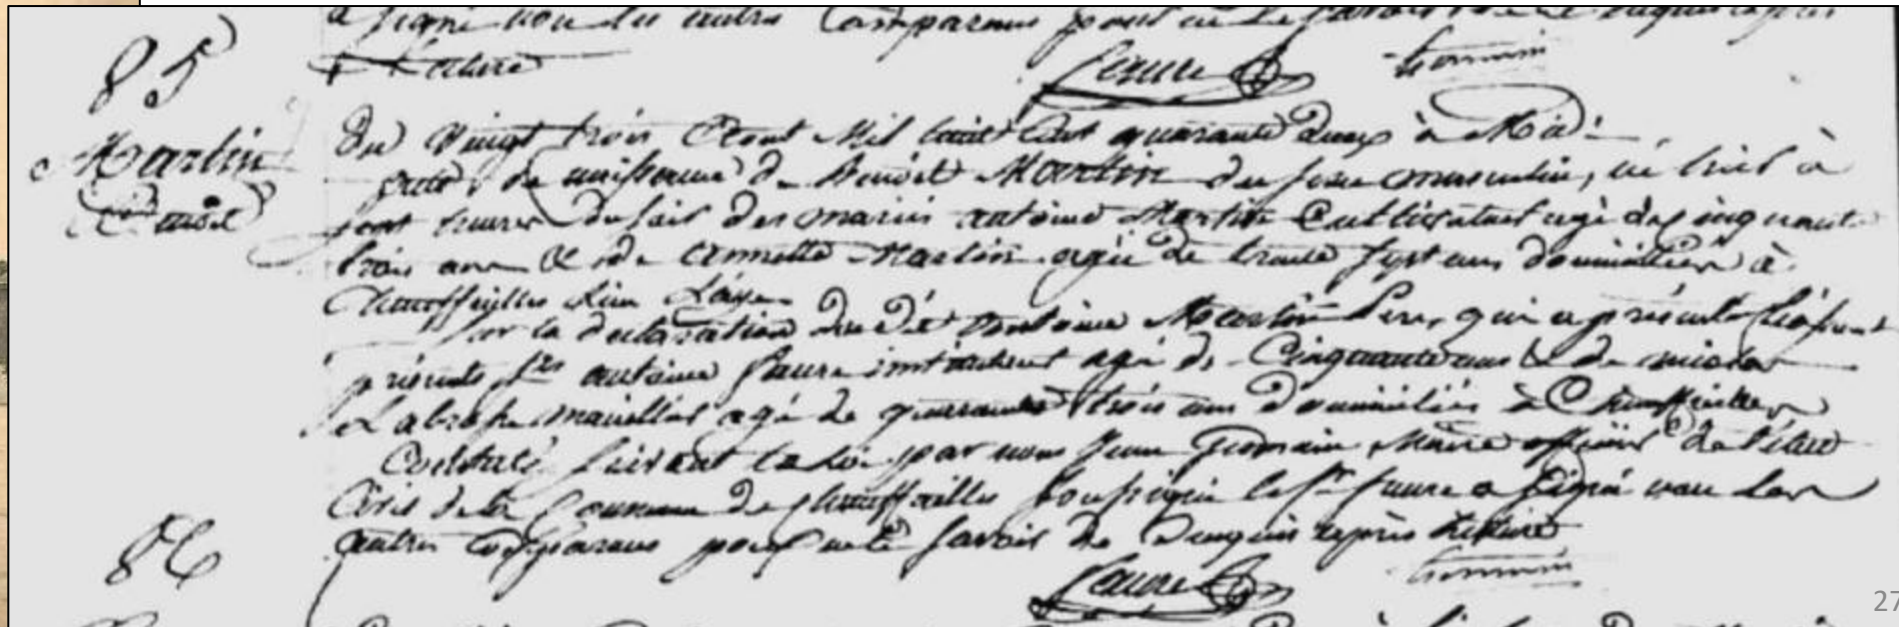 a signé non les autres Comparans pour ne le savoir de ce requis après
Lecture
Faure Germain
85
Martin
Benoit
Du vingt trois aout Mil huit Cent quarante deux à Midi
acte de naissance de Benoit Martin du sexe masculin, né hier à
sept heures du soir des mariés antoine Martin Cultivateur agé de Cinquante
trois ans & de annette Martin agée de trente sept ans domiciliés à
Chauffailles lieu
Sur la déclaration dudit antoine Martin Père, qui a présenté l'enfant
présents Srs antoine Faure instituteur agé de Cinquante ans & de
agé de quarante trois ans domiciliés à Chauffailles
Constaté suivant la loi par nous Jean Germain Maire officier de l'état
Civil de la Commune de Chauffailles soussigné le Sr Faure a signé non les
autres Comparans pour ne le savoir de Requis après Lecture
Faure Germain
86
27